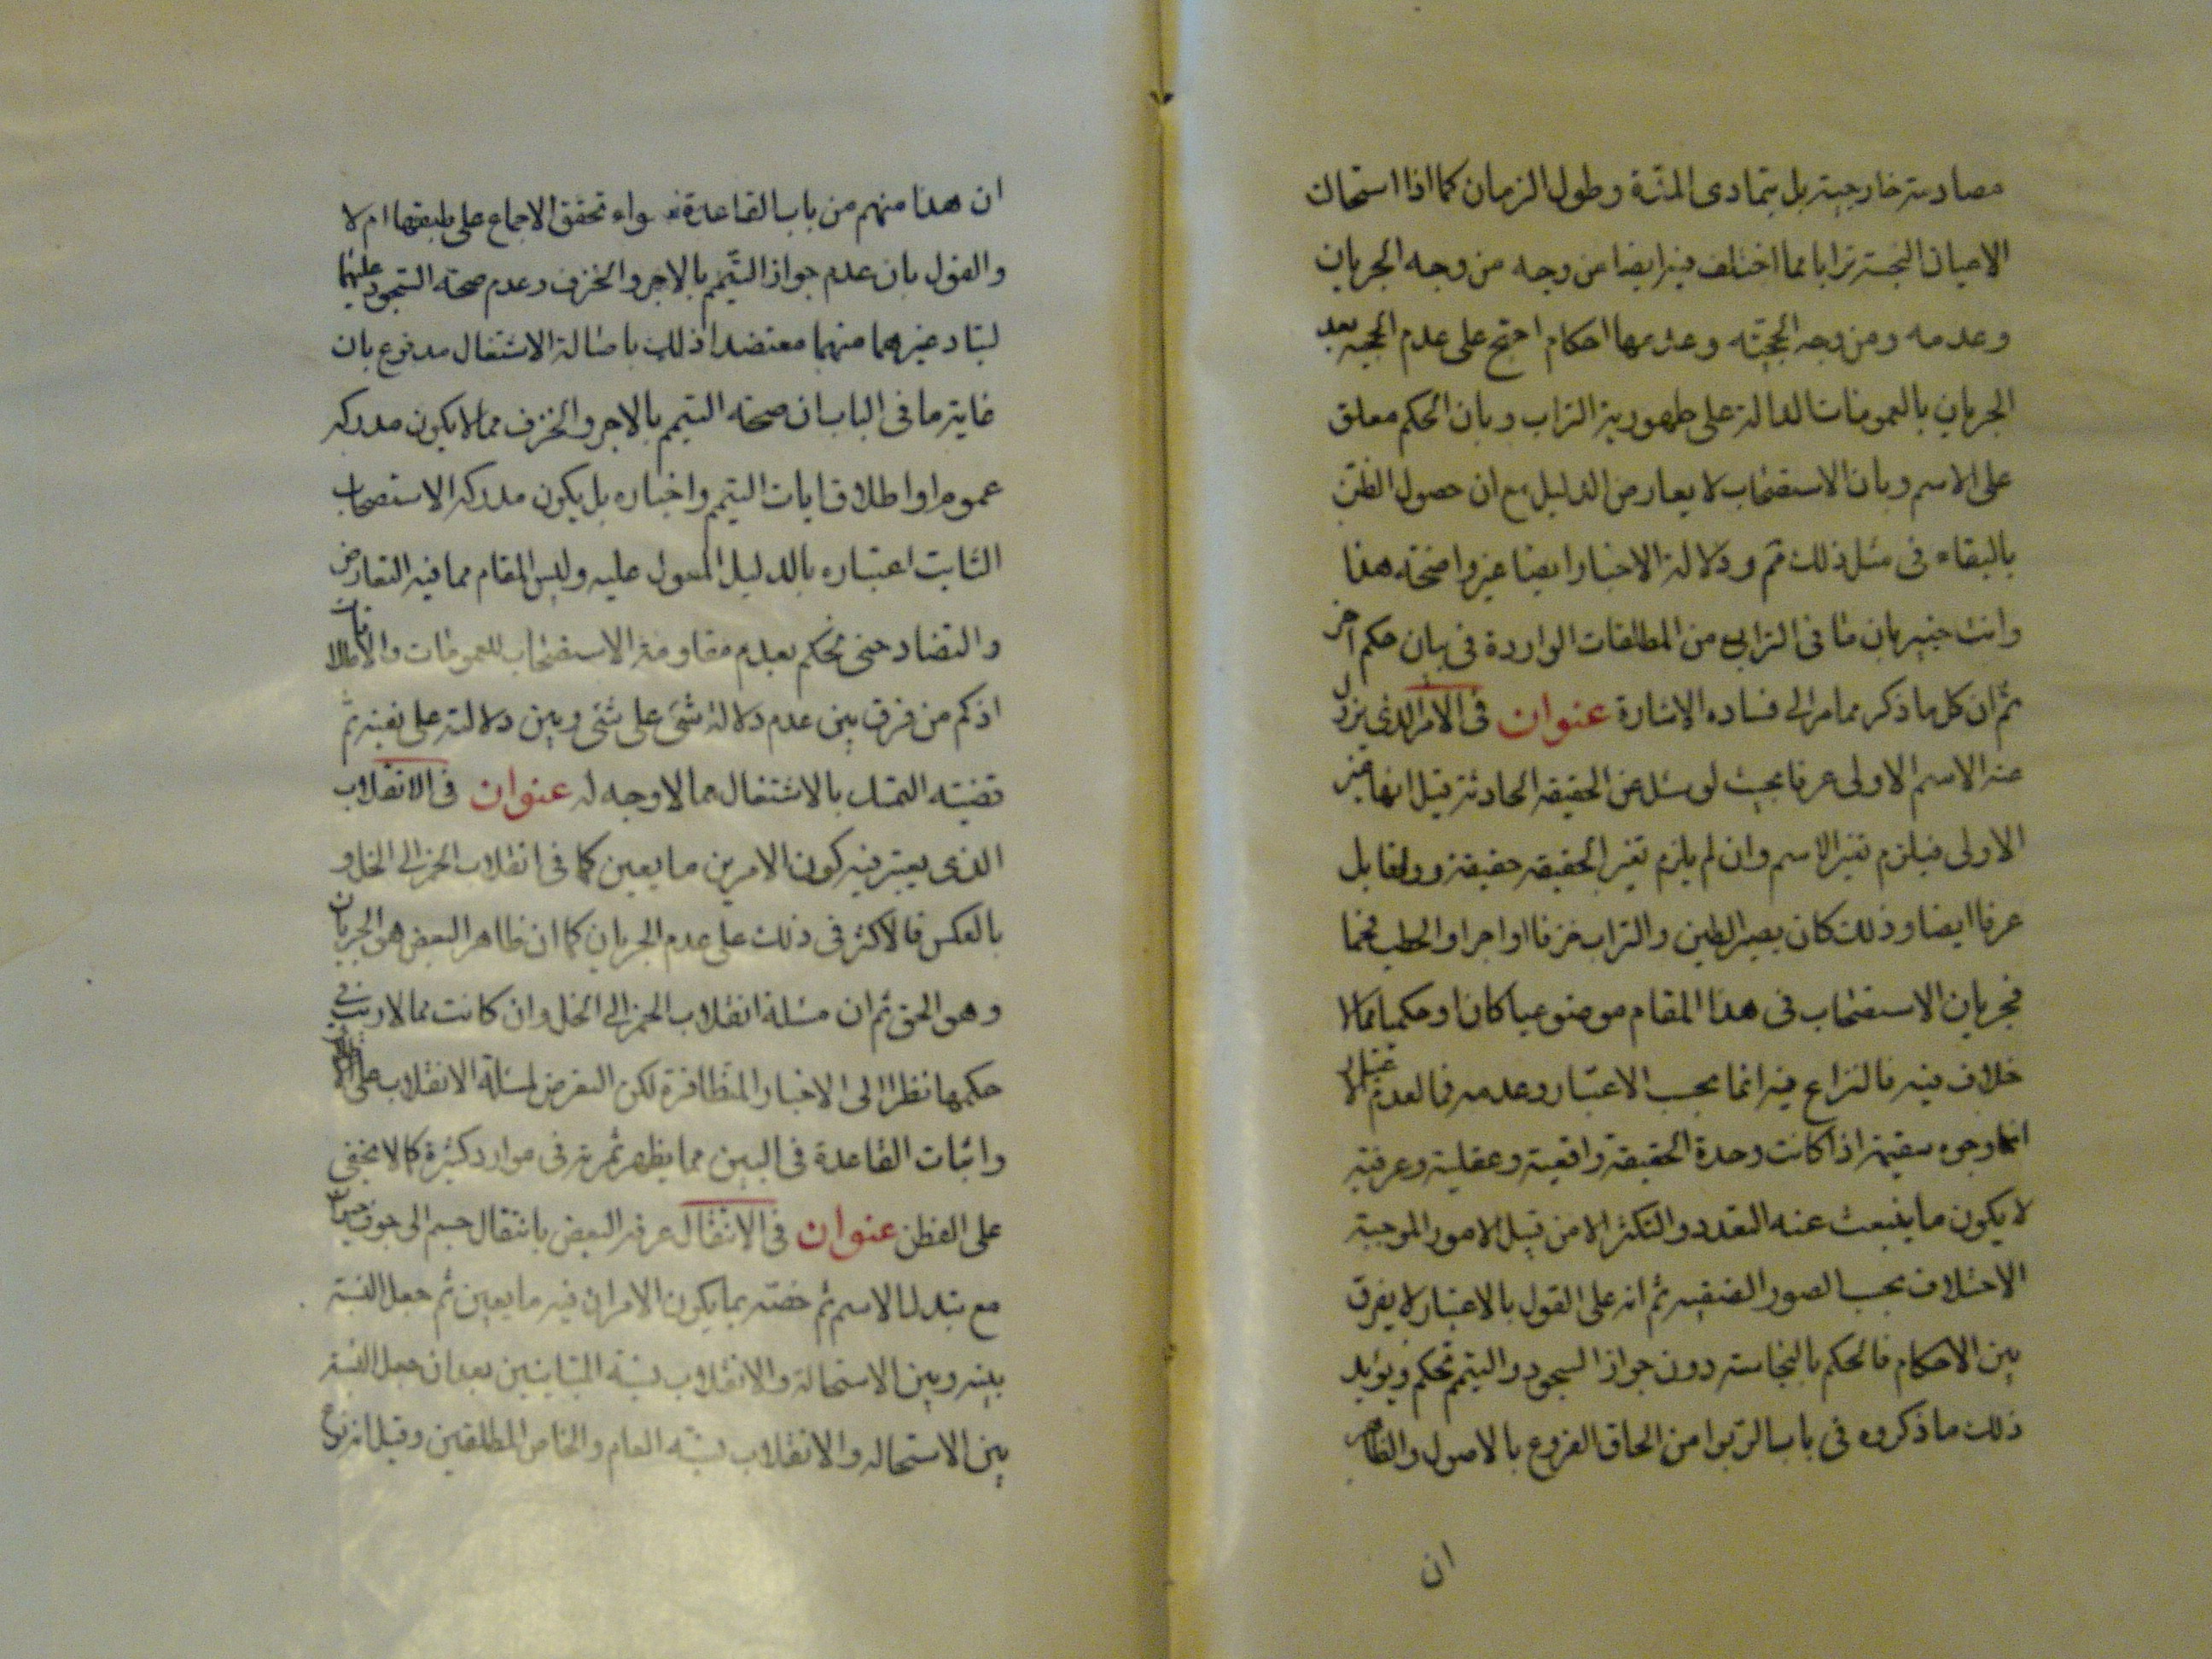 مصادمة خارجية بل بتمادى المدة وطول الزمان كما اذا استحالت
الاعيان النجسة ترابا مما اختلف فيه ايضا من وجه من وجه الجريان
وعدمه ومن وجه الحجية وعدمها احكام احتج على عدم الحجية بعد
الجريان بالعمومات الدالة على طهورية التراب وبان الحكم معلق
على الاسم وبان الاستصحاب لا يعارض الدليل مع ان حصول الظن
بالبقاء فى مثل ذلك ثم ودلالة الاخبار ايضا غير واضحة هذا
وانت خبير بان ما فى التراب من المطلقات الواردة فى بيان حكم اخر
ثم ان كل ما ذكر مما مر الى فساده الاشارة عنوان فى الامر الذى يزول
عنه الاسم الاولى عرفا بحيث لو سئل عن الحقيقة الحادثة قيل انها غير
الاولى فيلزم تغير الاسم وان لم يلزم تغير الحقيقه حقيقة
عرفا ايضا وذلك كان يصير الطين والتراب خزفا او اجرا والحطب فحما
فجريان الاستصحاب فى هذا المقام موضوعيا كان او حكميا مما لا
خلاف فيه فالنزاع فيه انما بحسب الاعتبار وعدمه
وجوه سقيمة اذا كانت وحدة الحقيقة واقعية وعقلية وعرفية
لا يكون ما ينبعث عنه التعدد والتكثر الا من قبيل الامور الموجبة
الاختلاف بحسب الصور الصنفيه ثم انه على القول بالاعتبار لا يفرق
بين الاحكام فالحكم بالنجاسة دون جواز السجود والتيمم تحكم ويؤيد
ذلك ما ذكروه فى باب الربوا من الحاق الفروع بالاصول والظاهر
ان
ان هذا منهم من باب القاعدة سواء تحقق الاجماع على طبقها ام لا
والقول بان عدم جواز التيمم بالاجر والخزف وعدم صحة السجود عليهما
لتبادر غيرهما منهما معتضدا ذلك باصالة الاشتغال مدفوع بان
غاية ما فى الباب ان صحة التيمم بالاجر والخزف مما لا يكون مدركه
عموم او اطلاق ايات التيمم واخباره بل يكون مدركه الاستصحاب
الثابت اعتباره بالدليل المعول عليه وليس المقام مما فيه التعارض
والتضاد حتى نحكم بعدم مقاومة الاستصحاب للعمومات والاطلاقات
اذ كم من فرق بين عدم دلالة شئ على شئ وبين دلالته على نفيه ثم
قضية التمسك بالاشتغال مما لا وجه له عنوان فى الانقلاب
الذى يعتبر فيه كون الامرين مايعين كما فى انقلاب الخمر الى الخل و
بالعكس فالاكثر فى ذلك على عدم الجريان كما ان ظاهر البعض هو الجريان
وهو الحق ثم ان مسئلة انقلاب الخمر الى الخل وان كانت مما لا ريب فى
حكمها نظرا الى الاخبار المتظافرة لكن التعرض لمسئلة الانقلاب على
واثبات القاعدة فى البين مما يظهر ثمرته فى موارد كثيرة كما لا يخفى
على الفطن عنوان فى الانتقال عرفه البعض بانتقال جسم الى جوف حيوان
مع تبدل الاسم ثم خصه بما يكون الامران فيه مايعين ثم جعل النسبة
بينه وبين الاستحالة والانقلاب نسبة المتباينين بعد ان جعل النسبة
بين الاستحاله والانقلاب نسبة العام والخاص المطلقين وقيل انه نوع